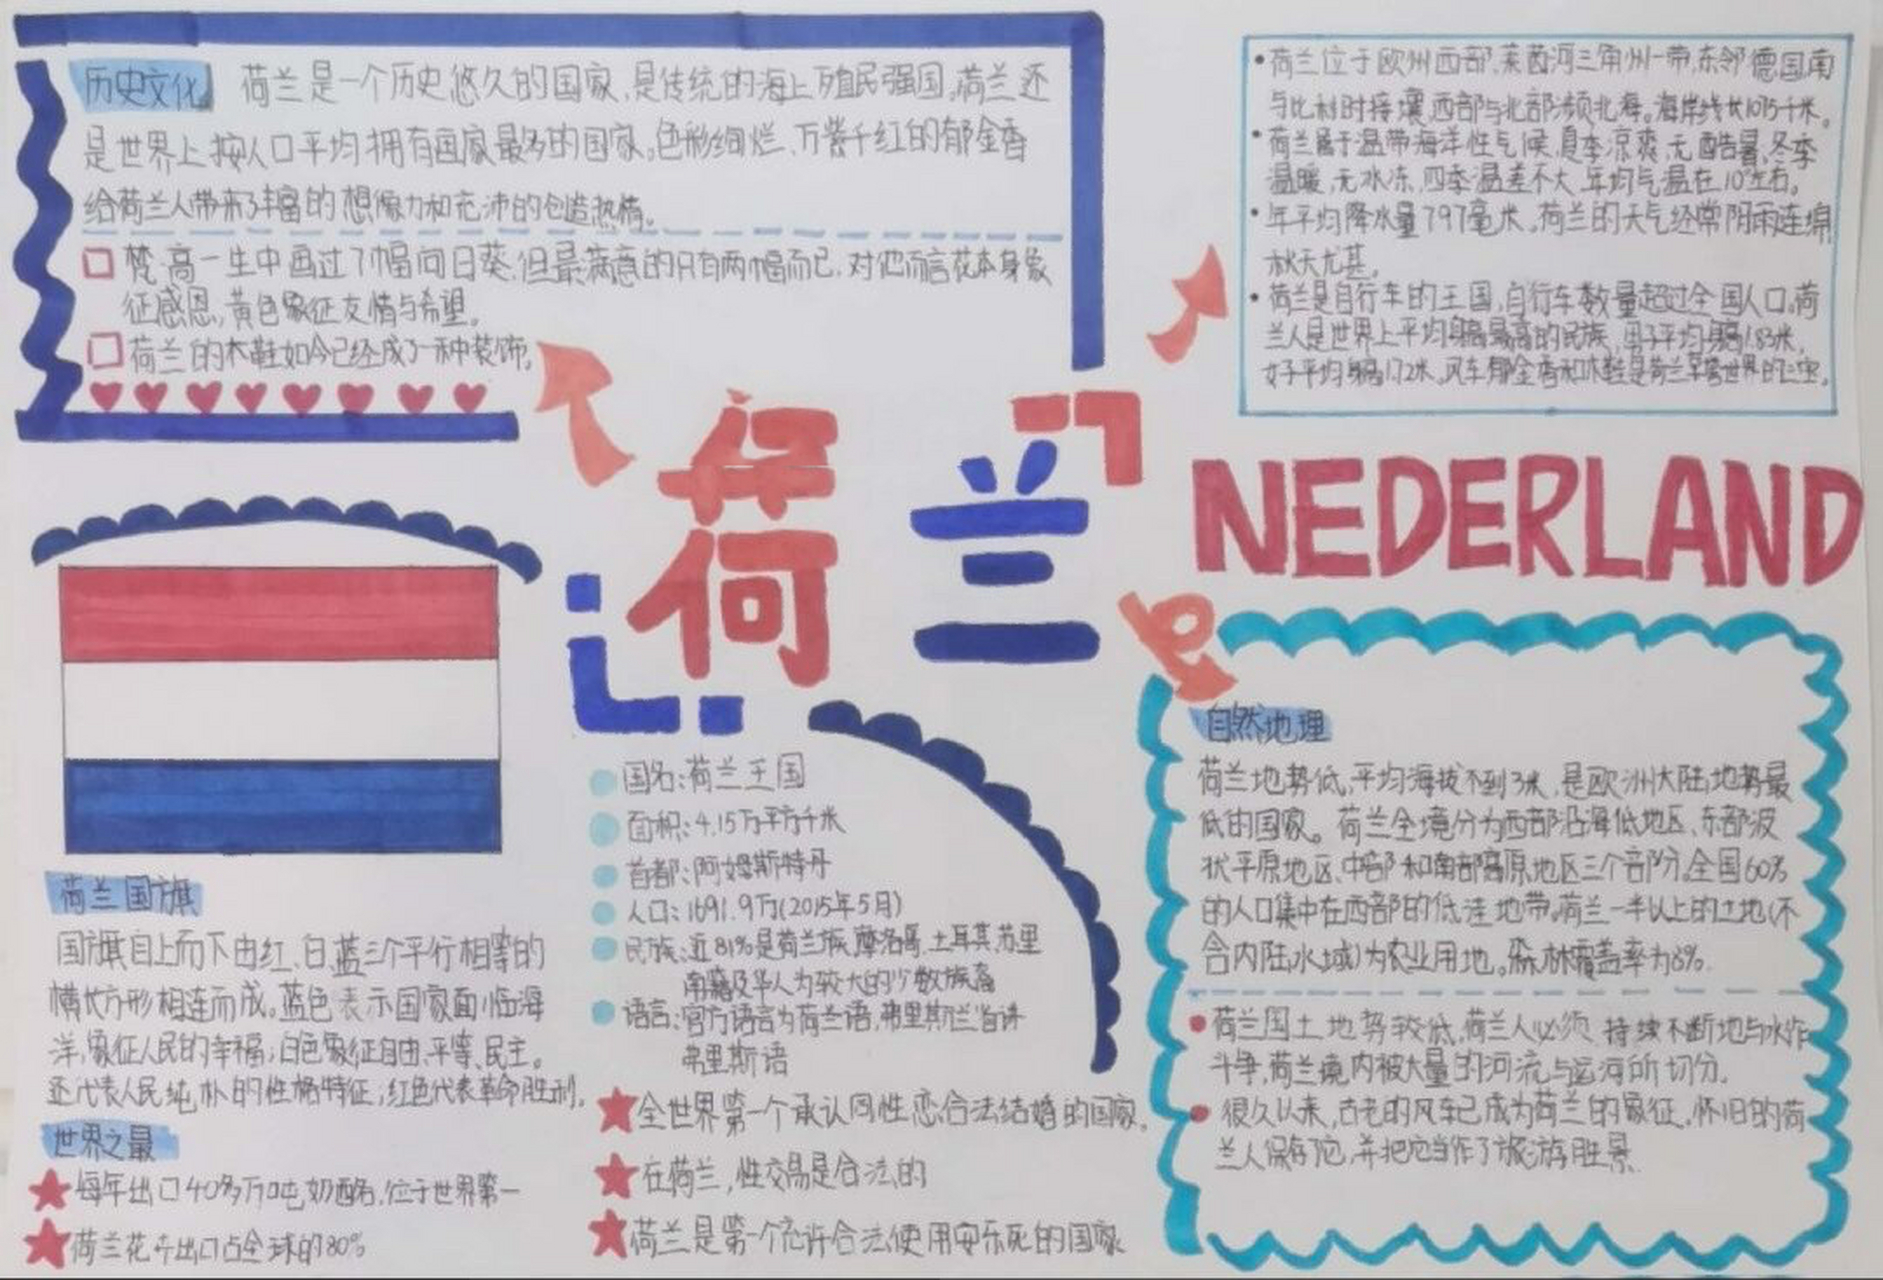 历史文化 荷兰是一个历史悠久的国家,是传统的海上殖民强国,荷兰还
是世界上按人口平均拥有画家最多的国家。色彩绚烂、万紫千红的郁金香
给荷兰人带来了丰富的想像力和充沛的创造热情。
梵高一生中画过了幅向日葵,但最满意的只有两幅而已,对他而言花本身象
征感恩,黄色象征友情与希望。
荷兰的木鞋如今已经成了一种装饰,
荷兰位于欧州西部,莱茵河三角州一带,东邻德国,南
与比利时接壤,西部与北部濒北海。海岸线长1075千米。
荷兰属于温带海洋性气候,夏季凉爽,无酷暑,冬季
温暖,无冰冻,四季温差不大,年均气温在10°左右。
年平均降水量797毫米,荷兰的天气经常阴雨连绵
秋天尤甚。
荷兰是自行车的王国,自行车数量超过全国人口,荷
兰人是世界上平均身高最高的民族,男子平均身高1.83米,
女子平均身高1.72米,风车郁金香和木鞋是荷兰享誉世界的
荷兰
NEDERLAND
荷兰国旗
国旗自上而下由红、白、蓝三个平行相等的
横长方形相连而成。蓝色表示国家面临海
洋,象征人民的幸福;白色象征自由、平等、民主。
还代表人民纯朴的性格特征;红色代表革命胜利。
世界之最
每年出口40多万吨奶酪,位于世界第一
荷兰花卉出口占全球的80%
国名:荷兰王国
面积:4.15万平方千米
首都:阿姆斯特丹
人口:1691.9万(2015年5月)
民族:近81%是荷兰族,摩洛哥、土耳其、苏里
南裔及华人为较大的少数族裔
语言:官方语言为荷兰语,弗里斯兰省讲
弗里斯语
全世界第一个承认同性恋合法结婚的国家。
在荷兰,性交易是合法的
荷兰是第一个允许合法使用安乐死的国家
自然地理
荷兰地势低,平均海拔不到3米,是欧洲大陆地势最
低的国家。荷兰全境分为西部沿海低地区、东部波
状平原地区、中部和南部高原地区三个部分,全国60%
的人口集中在西部的低洼地带。荷兰一半以上的土地(不
含内陆水域)为农业用地。森林覆盖率为8%.
荷兰国土地势较低,荷兰人必须持续不断地与水作
斗争,荷兰境内被大量的河流与运河所切分.
很久以来,古老的风车已成为荷兰的象征,怀旧的荷
兰人保存了它,并把它当作了旅游胜景.